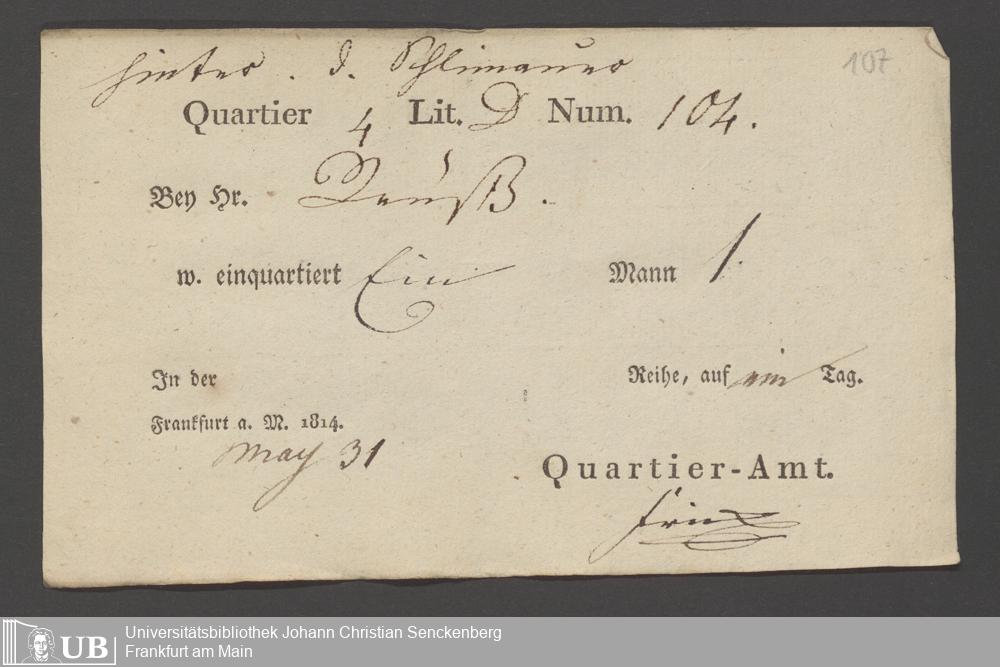 hinter. d. Schlimauer
107
Quartier 4 Lit. D Num. 104.
Bey Hr. Reuß.
w. einquartiert Ein Mann 1.
In der Reihe, auf ein Tag.
Frankfurt a. M. 1814.
May 31
Quartier-Amt.
UB Universitätsbibliothek Johann Christian Senckenberg
Frankfurt am Main